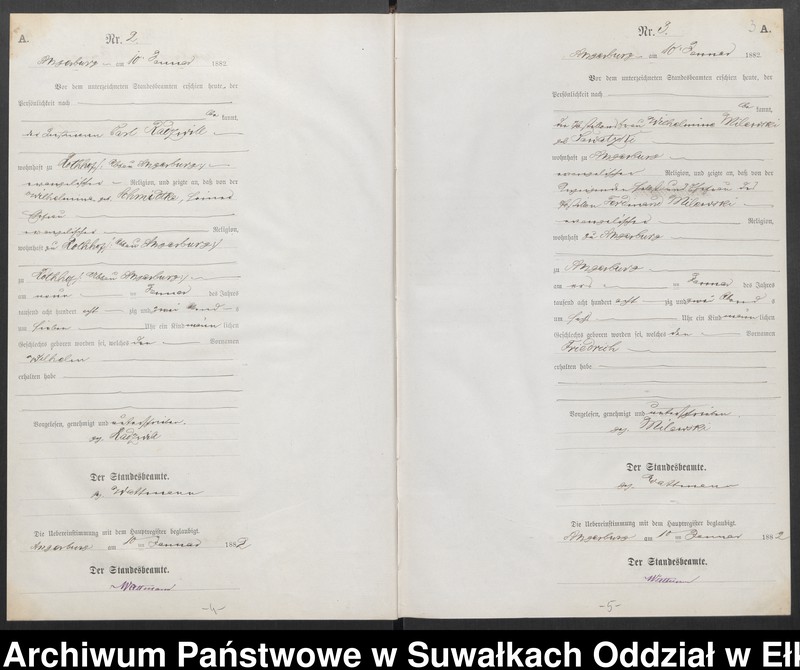 A.
Nr. 2.
Angerburg am 10 Januar 1882
Vor dem unterzeichneten Standesbeamten erschien heute, der
Persönlichkeit nach
kannt,
der Carl Radziwill
wohnhaft zu Kothhof Angerburg
evangelischer Religion, und zeigte an, daß von der
Wilhelmine geb. Schmidtke, seiner
Ehefrau
evangelischer Religion,
wohnhaft zu Kothhof Angerburg
zu Kothhof Angerburg
am Januar des Jahres
tausend acht hundert acht zig und zwei Abend s
um sieben Uhr ein Kind männ lichen
Geschlechts geboren worden sei, welches den Vornamen
Wilhelm
erhalten habe
Vorgelesen, genehmigt und unterschrieben.
gez. Radziwill
Der Standesbeamte.
gz. Wattmann
Die Uebereinstimmung mit dem Hauptregister beglaubigt.
Angerburg am 10 ten Januar 1882
Der Standesbeamte.
Wattmann
-4-
3
A.
Nr. 3.
Angerburg am 10 Januar 1882
Vor dem unterzeichneten Standesbeamten erschien heute, der
Persönlichkeit nach
kannt,
die Wilhelmine Milewski
geb.
wohnhaft zu Angerburg
evangelischer Religion, und zeigte an, daß von der
und Ehefrau des
Ferdinand Milewski
evangelischer Religion,
wohnhaft zu Angerburg
zu Angerburg
am Januar des Jahres
tausend acht hundert acht zig und zwei Abend s
um sechs Uhr ein Kind männ lichen
Geschlechts geboren worden sei, welches den Vornamen
Friedrich
erhalten habe
Vorgelesen, genehmigt und unterschrieben.
gez. Milewski
Der Standesbeamte.
gez. Wattmann
Die Uebereinstimmung mit dem Hauptregister beglaubigt.
Angerburg am 10 ten Januar 1882
Der Standesbeamte.
Wattmann
-5-
Archiwum Państwowe w Suwałkach Oddział w Eł